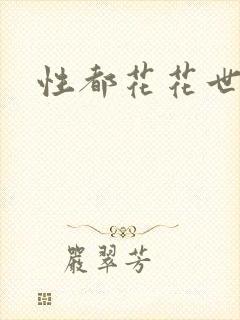 性都花花世
嚴翠芳